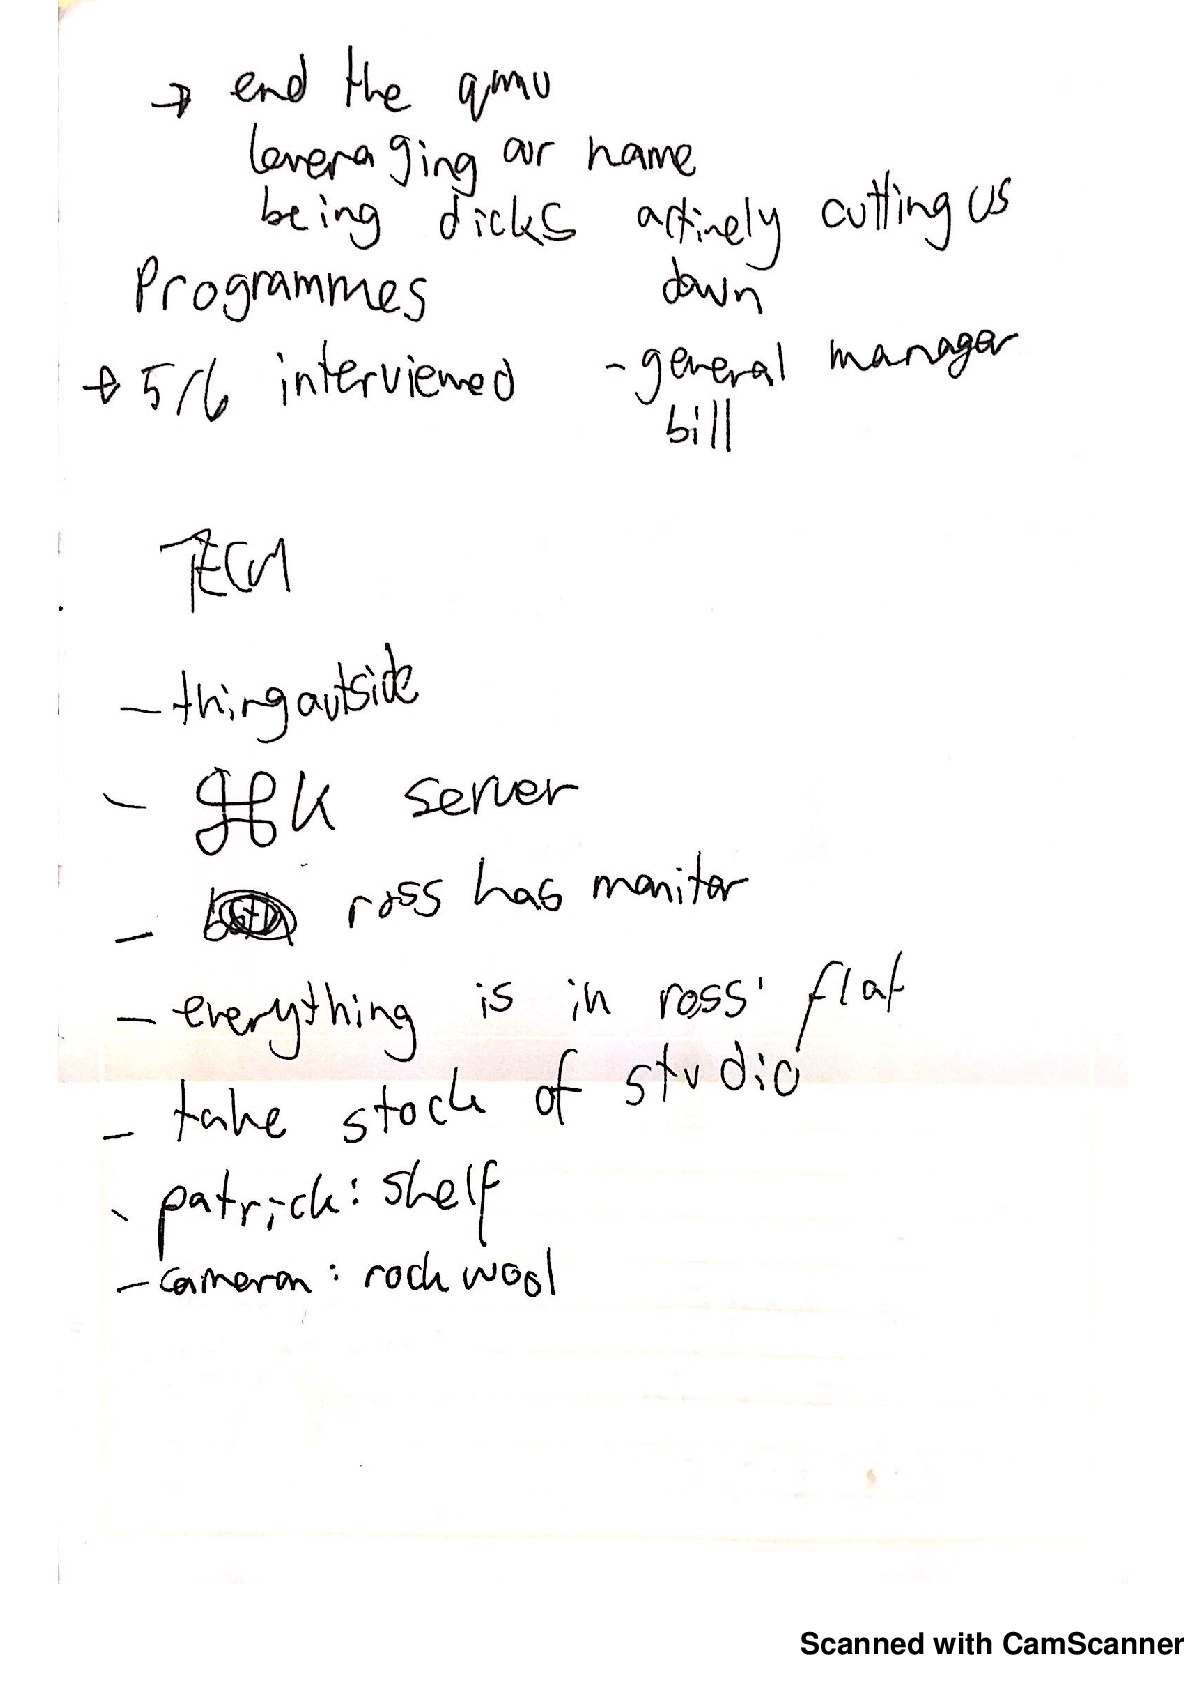 → end the qmu
leveraging our name
being dicks actively cutting us
down
Programmes
→ 5/6 interviewed
- general manager
bill
TECH
- thing outside
- ⌘K server
- ross has monitor
- everything is in ross' flat
- take stock of studio
- patrick: shelf
- cameron: rockwool
Scanned with CamScanner